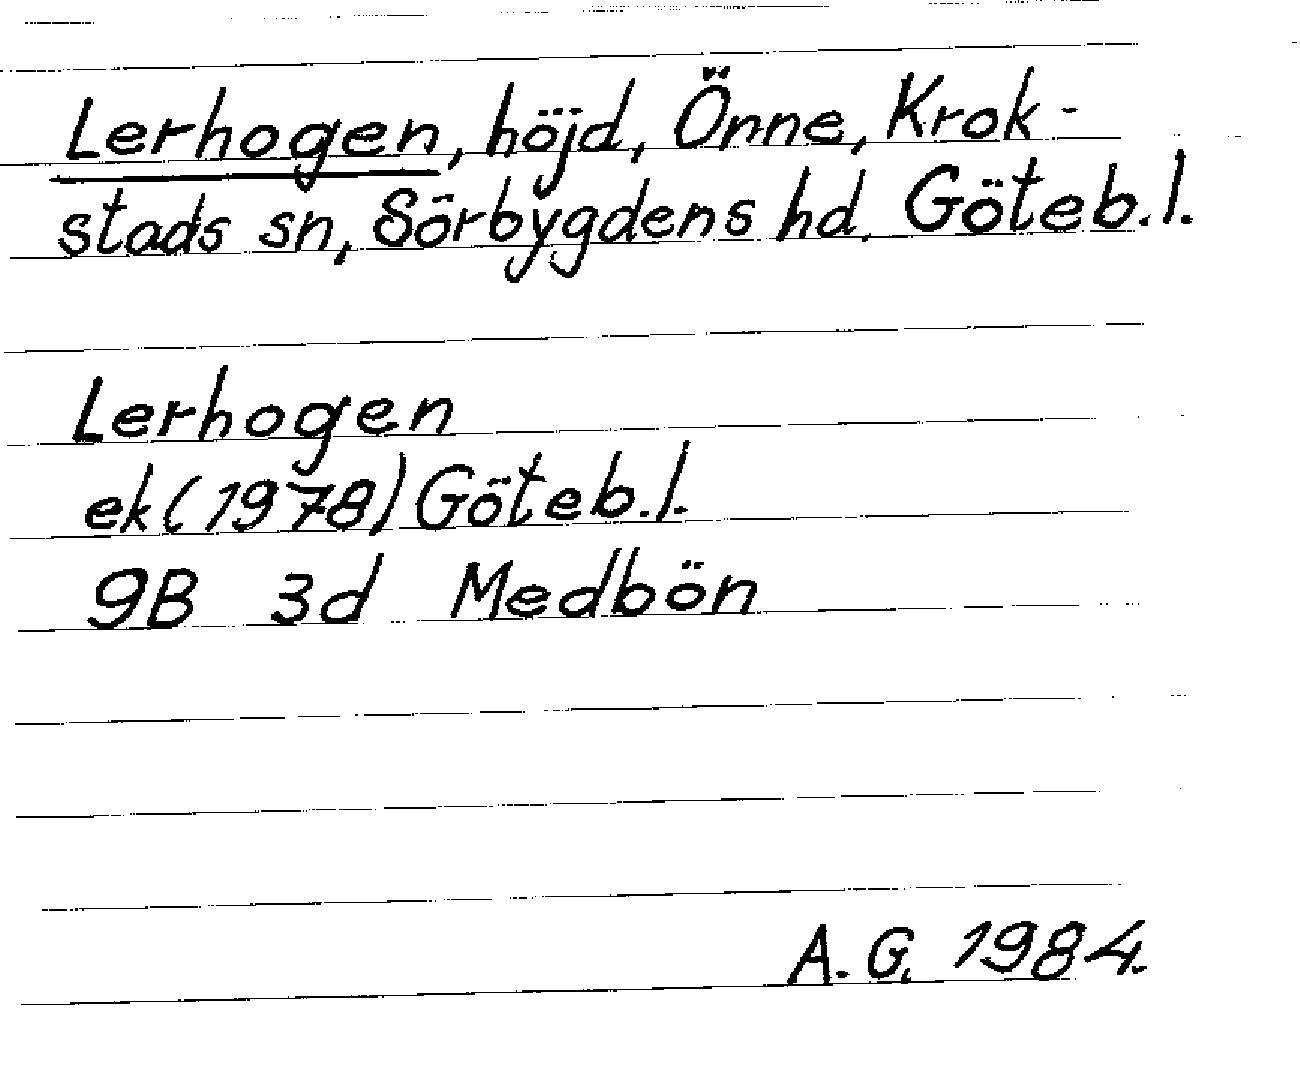 Lerhogen, höjd, Önne, Krok-
stads sn, Sörbygdens hd. Göteb.l.
Lerhogen
ek(1978) Göteb.l.
9B 3d Medbön
A.G. 1984.